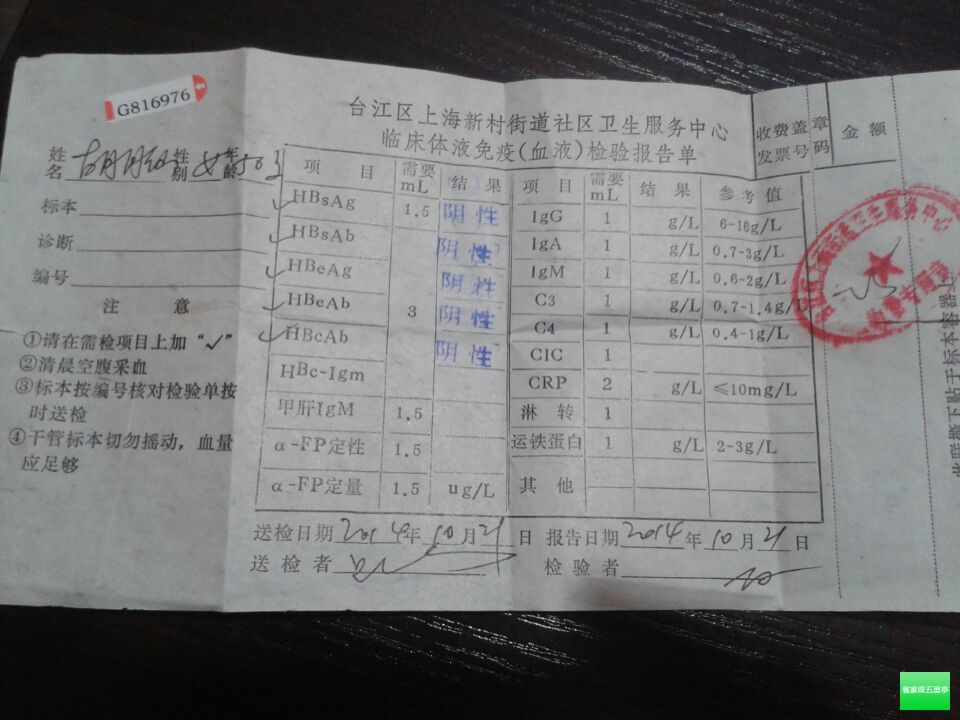 G816976
台江区上海新村街道社区卫生服务中心
临床体液免疫(血液)检验报告单
收费盖章 金额
发票号码
姓名 性别 女 年龄 50
标本
诊断
编号
注 意
①请在需检项目上加“✓”
②清晨空腹采血
③标本按编号核对检验单按
时送检
④干管标本切勿摇动，血量
应足够
项 目 需要mL 结 果 项 目 需要mL 结 果 参考值
HBsAg 1.5 阴性 IgG 1 g/L 6-16g/L
HBsAb 阴性 IgA 1 g/L 0.7-3g/L
HBeAg 阴性 IgM 1 g/L 0.6-2g/L
HBeAb 3 阴性 C3 1 g/L 0.7-1.4g/L
HBcAb 阴性 C4 1 g/L 0.4-1g/L
HBc-Igm C1C 1
甲肝IgM 1.5 CRP 2 g/L ≤10mg/L
α-FP定性 1.5 淋 转 1
α-FP定量 1.5 ug/L 运铁蛋白 1 g/L 2-3g/L
其 他
送检日期 2014年10月21日 报告日期 2014年10月21日
送检者 检验者
省家政五里亭